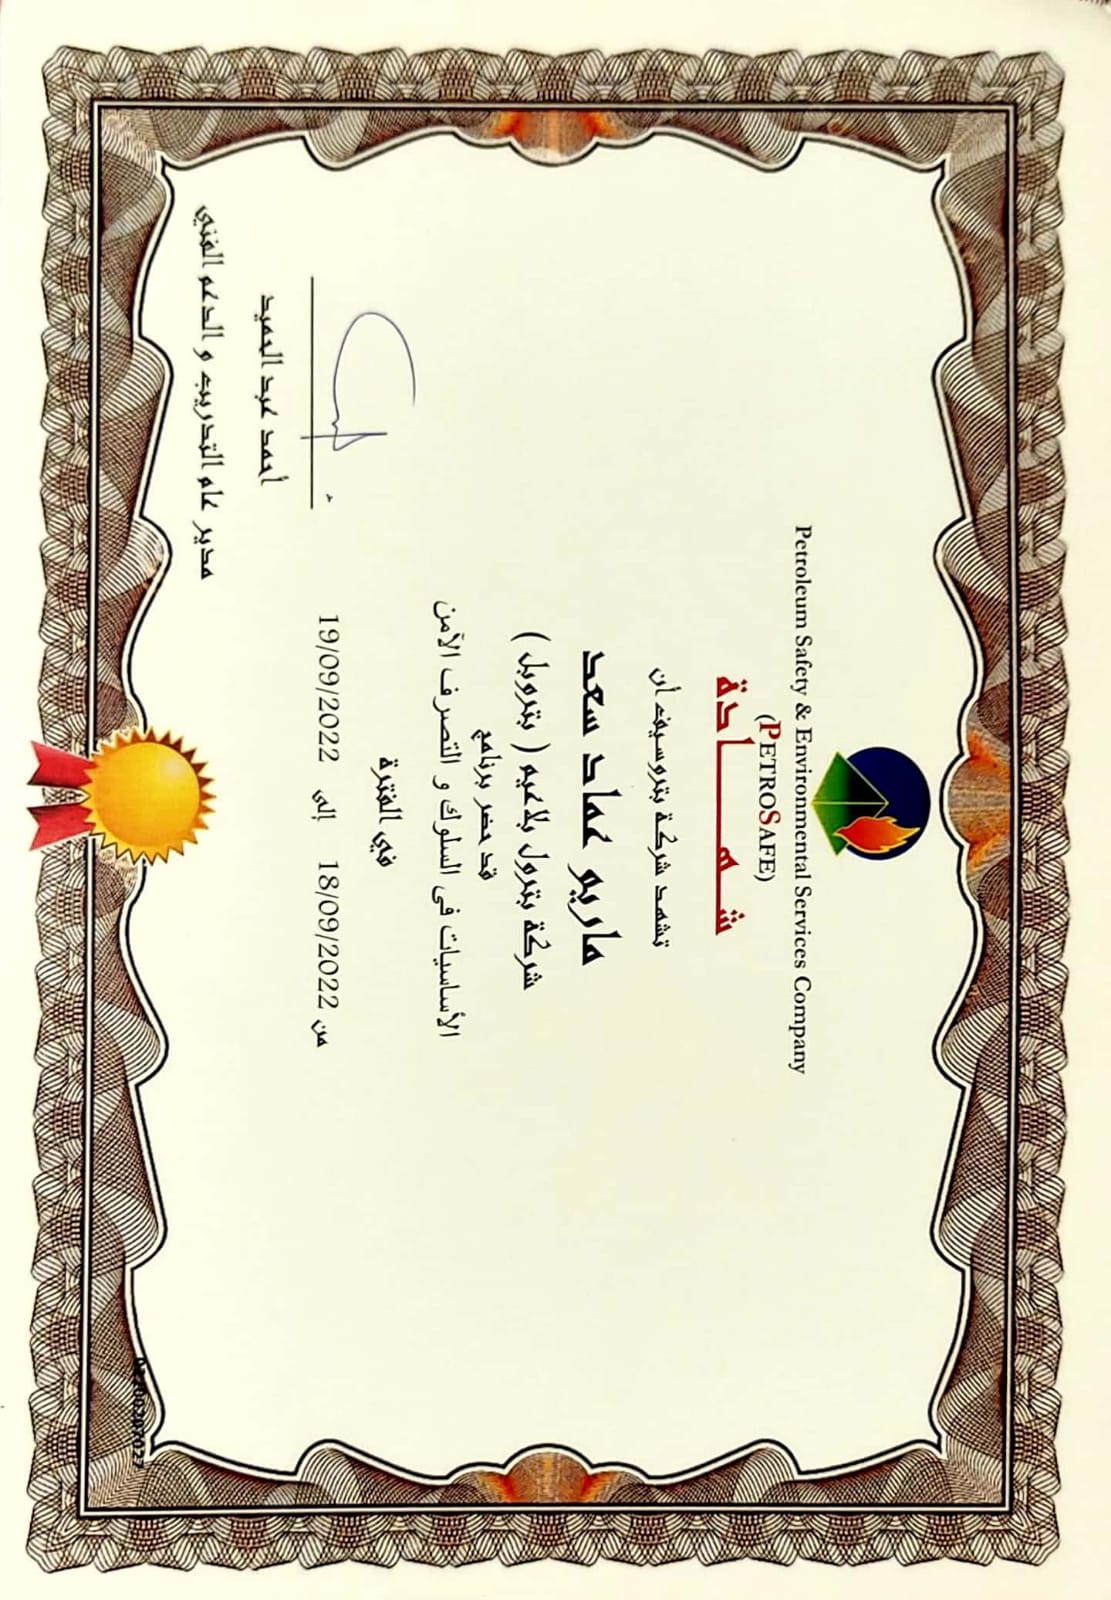 Petroleum Safety & Environmental Services Company
(PETROSAFE)
شهـــادة
تشهد شركة بتروسيف أن
ماريو عماد سعد
شركة بترول بلاعيم ( بتروبل )
قد حضر برنامج
الأساسيات فى السلوك و التصرف الآمن
في الفترة
من 18/09/2022 إلى 19/09/2022
أحمد عبد الحميد
مدير عام التدريب و الدعم الفني